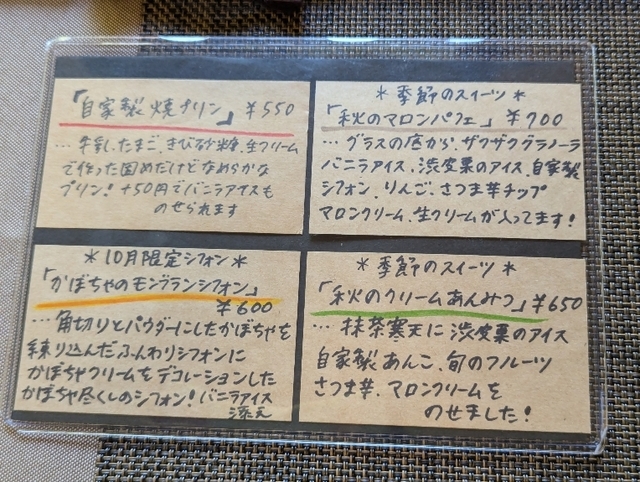 「自家製焼プリン」 ¥550
… 牛乳、たまご、きび砂糖、生クリーム
で作った固めだけどなめらかな
プリン! +50円でバニラアイスも
のせられます
＊季節のスイーツ＊
「秋のマロンパフェ」 ¥700
… グラスの底から、ザクザクグラノーラ
バニラアイス、渋皮栗のアイス、自家製
シフォン、りんご、さつま芋チップ
マロンクリーム、生クリームが入ってます!
＊10月限定シフォン＊
「かぼちゃのモンブランシフォン」
¥600
… 角切りとパウダーにしたかぼちゃを
練り込んだふんわりシフォンに
かぼちゃクリームをデコレーションした
かぼちゃ尽くしのシフォン! バニラアイス
添え
＊季節のスイーツ＊
「秋のクリームあんみつ」 ¥650
… 抹茶寒天に渋皮栗のアイス
自家製あんこ、旬のフルーツ
さつま芋、マロンクリームを
のせました!